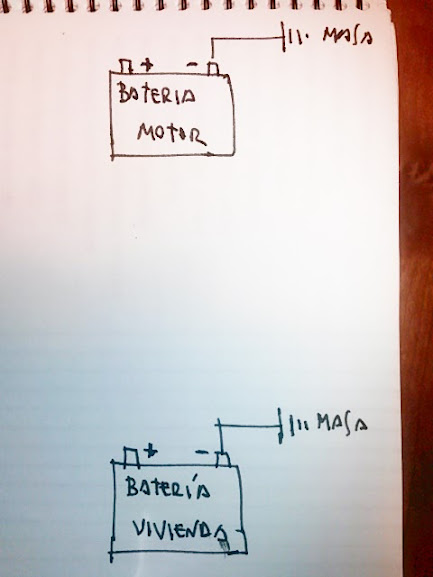 MASA
+ -
BATERIA
MOTOR
MASA
+ -
BATERÍA
VIVIENDA